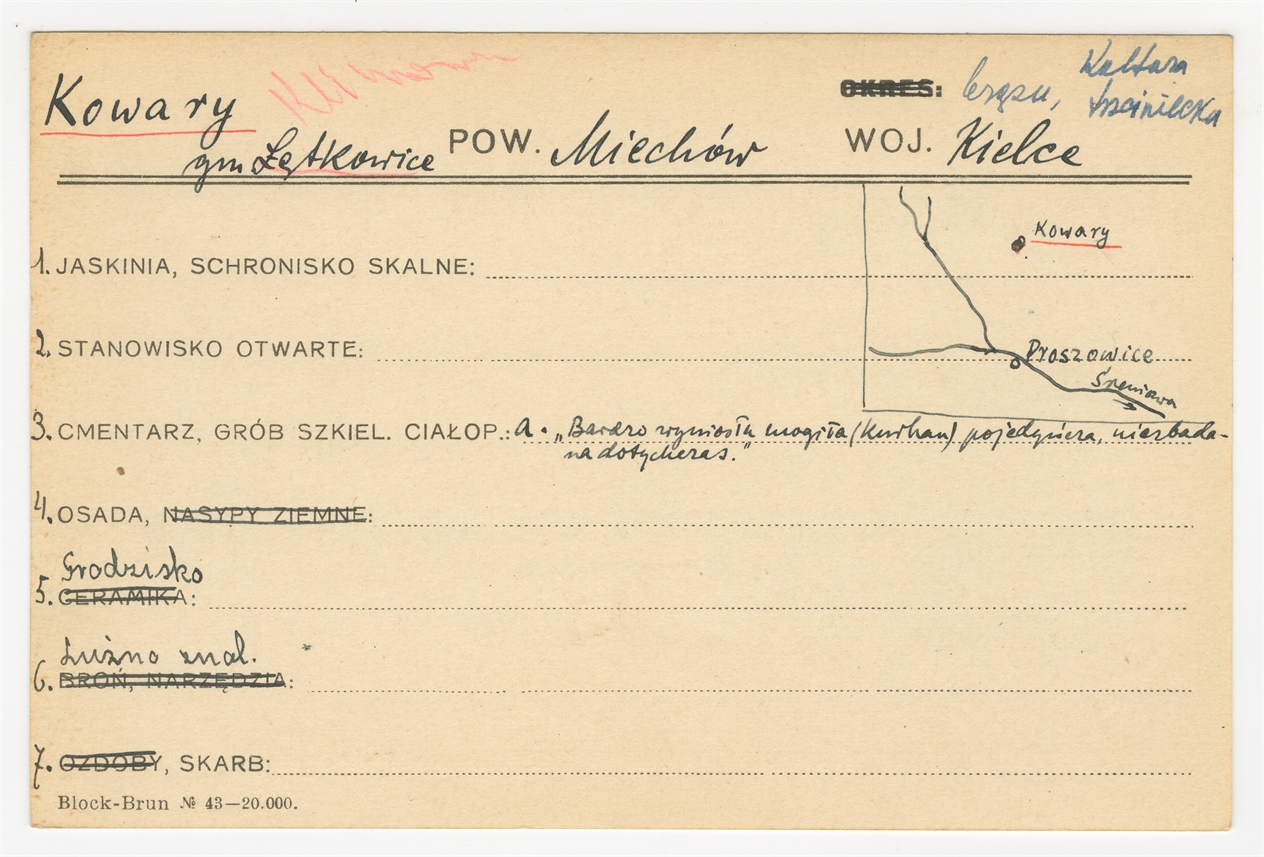 Kowary
OKRES: brązu, Kultura trzciniecka
gm Łętkowice POW. Miechów WOJ. Kielce
Kowary
1. JASKINIA, SCHRONISKO SKALNE:
2. STANOWISKO OTWARTE:
Proszowice
Śreniawa
3. CMENTARZ, GRÓB SZKIEL. CIAŁOP.: a. „Bardzo wyniosła mogiła (Kurhan) pojedyńcza, niezbada-
na dotychczas."
4. OSADA, NASYPY ZIEMNE:
Grodzisko
5. CERAMIKA:
Luźno znal.
6. BROŃ, NARZĘDZIA:
7. OZDOBY, SKARB:
Block-Brun № 43—20.000.